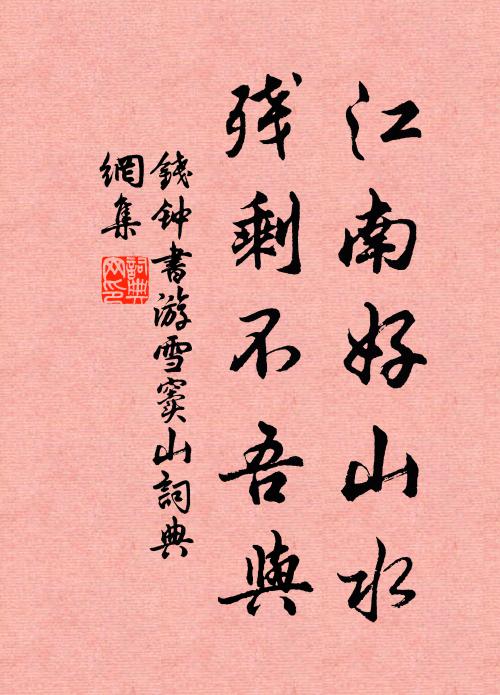 江南好山水
残剩不吾與
錢钟書游雪窦山詞典
網集
詞典
网印